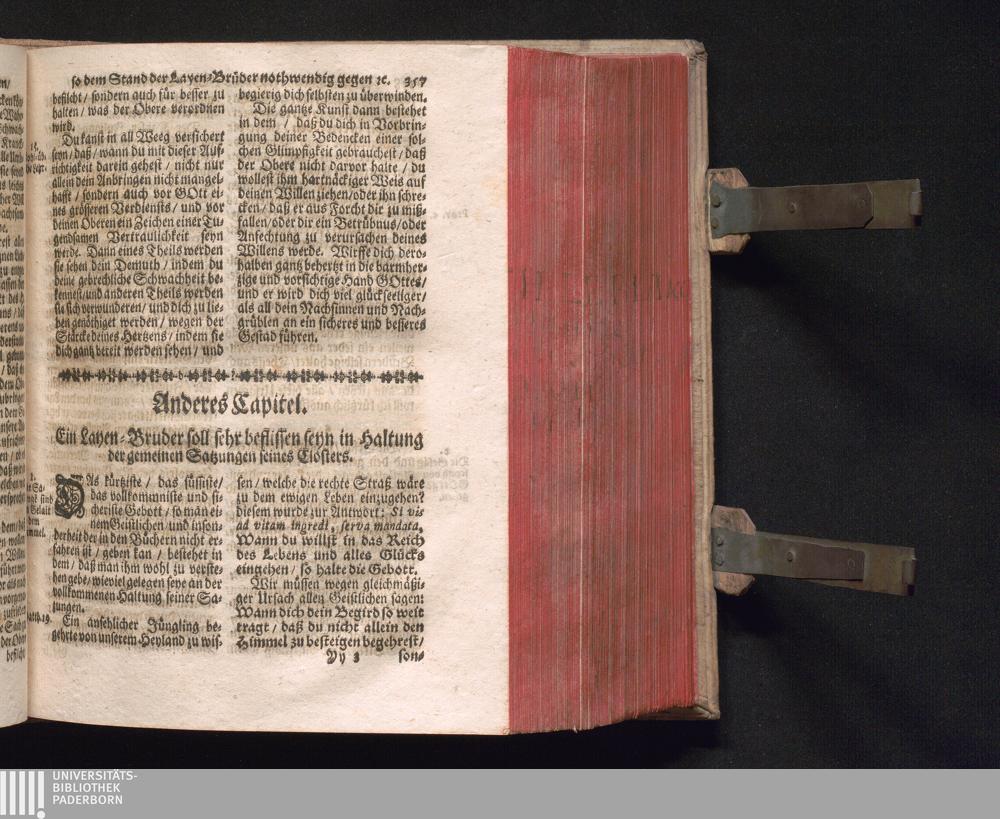 so dem Stand der Layen-Brüder nothwendig gegen ꝛc. 357
befilcht / sondern auch für besser zu
halten / was der Obere verordnen
wird.
Du kanst in all Weeg versichert
seyn / daß / wann du mit dieser Auf-
richtigkeit darein gehest / nicht nur
allein dein Anbringen nicht mangel-
hafft / sondern auch vor GOtt ei-
nes grösseren Verdiensts / und vor
deinen Oberen ein Zeichen einer Tu-
gendsamen Vertraulichkeit seyn
werde. Dann eines Theils werden
sie sehen dein Demuth / indem du
deine gebrechliche Schwachheit be-
kennest / und anderen Theils werden
sie sich verwunderen / und dich zu lie-
ben genöthiget werden / wegen der
Stärcke deines Hertzens / indem sie
dich gantz bereit werden sehen / und
begierig dich selbsten zu überwinden.
Die gantze Kunst dann bestehet
in dem / daß du dich in Vorbrin-
gung deiner Bedencken einer sol-
chen Glimpfigkeit gebrauchest / daß
der Obere nicht darvor halte / du
wollest ihm hartnäckiger Weis auf
deinen Willen ziehen / oder ihn schre-
cken / daß er aus Forcht dir zu miß-
fallen / oder dir ein Betrübnus / oder
Anfechtung zu verursachen deines
Willens werde. Wirffe dich dero-
halben gantz behertzt in die barmher-
zige und vorsichtige Hand GOttes /
und er wird dich viel glückseeliger /
als all dein Nachsinnen und Nach-
grüblen an ein sicheres und besseres
Gestad führen.
Anderes Capitel.
Ein Layen-Bruder soll sehr beflissen seyn in Haltung
der gemeinen Satzungen seines Closters.
DAs kürtziste / das süssiste /
das vollkommniste und si-
cheriste Gebott / so man ei-
nem Geistlichen / und inson-
derheit der in den Büchern nicht er-
fahren ist / geben kan / bestehet in
dem / daß man ihm wohl zu verste-
hen gebe / wieviel gelegen seye an der
vollkommenen Haltung seiner Sa-
zungen.
Ein ansehlicher Jüngling be-
gehrte von unserem Heyland zu wis-
sen / welche die rechte Straß wäre
zu dem ewigen Leben einzugehen?
diesem wurde zur Antwort: Si vis
ad vitam ingredi, serva mandata,
Wann du willst in das Reich
des Lebens und alles Glücks
eingehen / so halte die Gebott.
Wir müssen wegen gleichmäßi-
ger Ursach allen Geistlichen sagen:
Wann dich dein Begird so weit
tragt / daß du nicht allein den
Himmel zu besteigen begehrest /
Yy 3 son-
UNIVERSITÄTS-
BIBLIOTHEK
PADERBORN